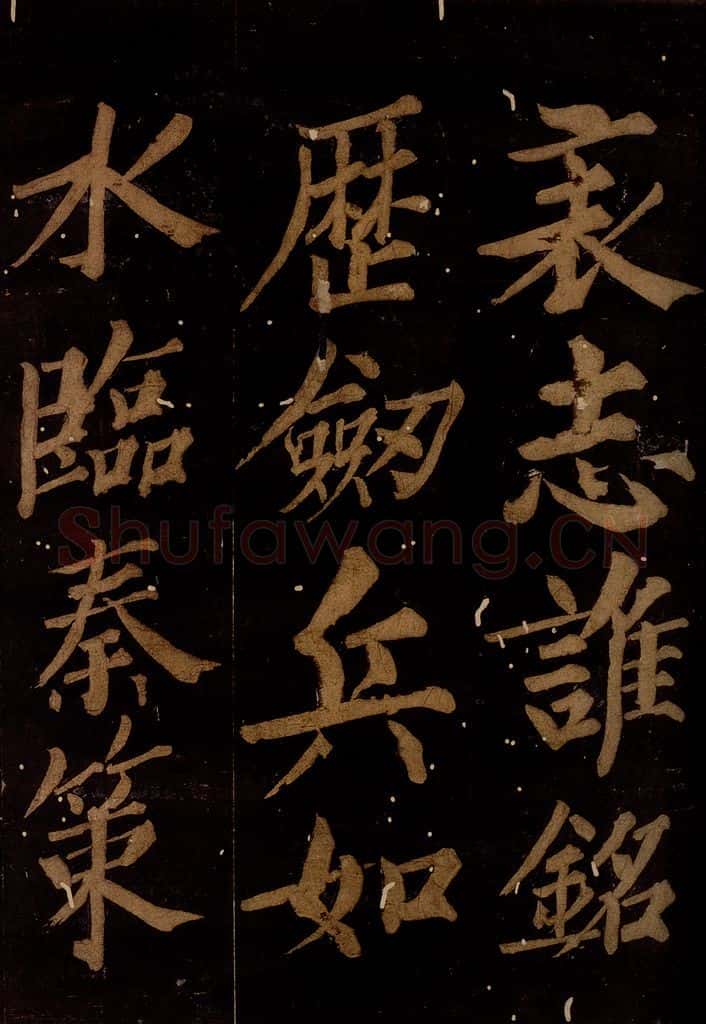 哀志誰銘
歷劒兵如
水臨秦策
Shufawang.CN